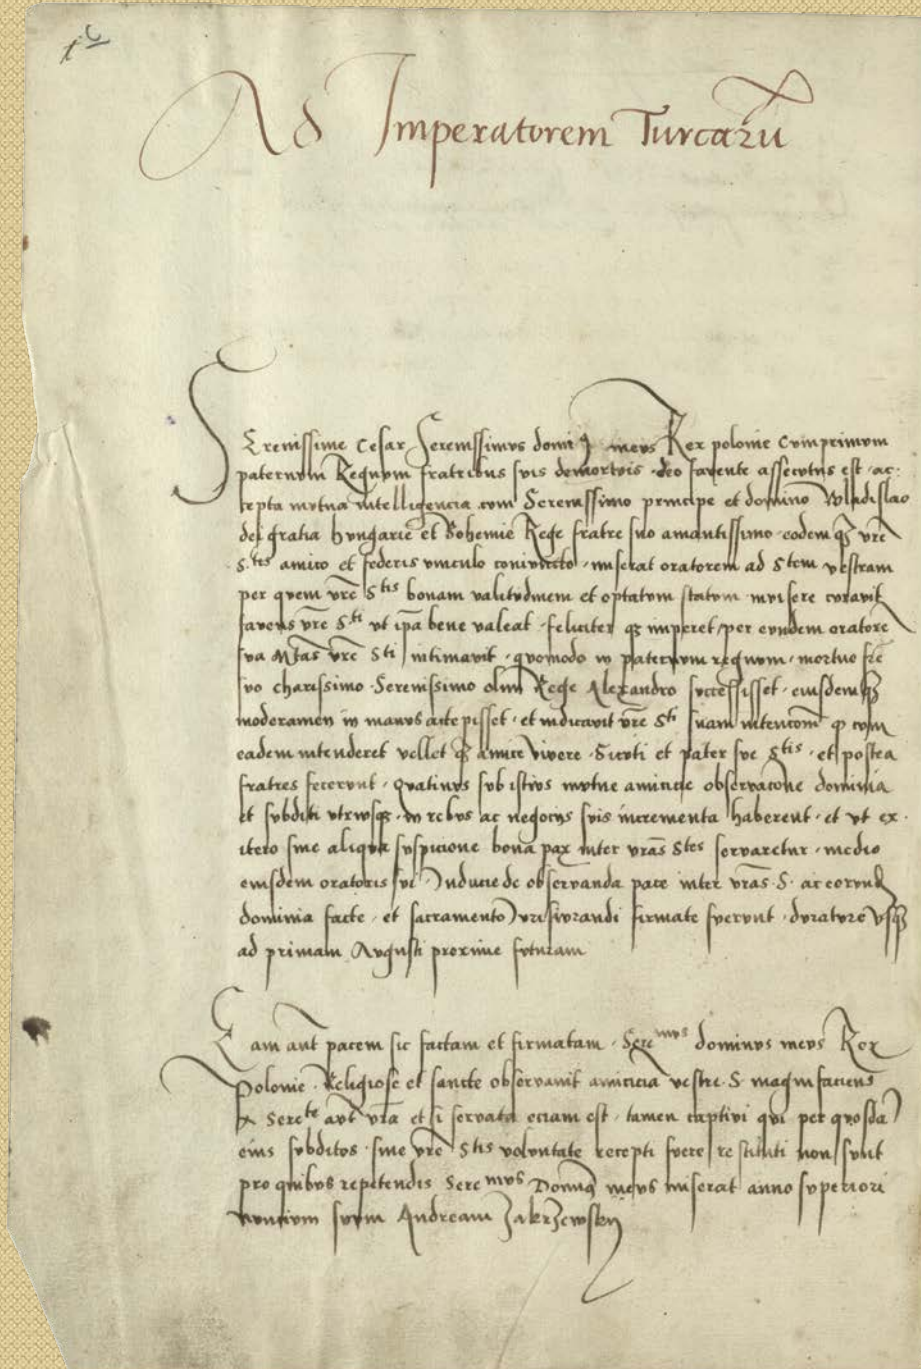 Ad Imperatorem Turcarũ
Serenissime Cesar Serenissimus dominꝰ meus Rex polonie Cumprimum
paternum Regnum fratribus suis demortuis deo favente assecutus est ac
cepta mutua intelligencia cum Serenissimo principe et domino Wladislao
dei gratia hungarie et Bohemie Rege fratre suo amantissimo eodem qȝ vr̃e
S.tis amico et federis vinculo coniuncto miserat oratorem ad Stem vestram
per quem vr̃e Stis bonam valitudinem et optatum statum invisere curavit
favens vr̃e Sti ut ip̃a bene valeat feliciter qȝ imperet per eundem oratorẽ
sua M̃tas vr̃e Sti intimavit quomodo in paternum regnum mortuo fr̃e
suo charissimo Serenissimo olim Rege Alexandro successisset eiusdemqȝ
moderamen in manus accepisset et indicavit vr̃e Sti suam intencom̃ q̃ cum
eadem intenderet vellet qȝ amice vivere Sicuti et pater sue Stis et postea
fratres fecerunt quatinus sub istius mutue amicicie observacõne dominia
et subditi utrusqȝ in rebus ac negocijs suis incrementa haberent et ut ex
itero sine aliqua suspicione bona pax inter vrãs Stes servaretur medio
eiusdem oratoris sui Inducie de observanda pace inter vrãs S. ac eorund
dominia facte et sacramento Iurisiurandi firmate fuerunt durature usqȝ
ad primam Augusti proxime futuram
Eam aũt pacem sic factam et firmatam Seremus dominus meus Rex
Polonie Religiose et sancte observavit amicicia vestre S. magnifaciens
A Serete aũt vr̃a et si servata eciam est tamen captivi qui per quosdã
eius subditos sine vr̃e Stis voluntate recepti fuere restituti non sunt
pro quibus repetendis Seremus Domnꝰ meus miserat anno superiori
nuntium suum Andream Zakrzewsky